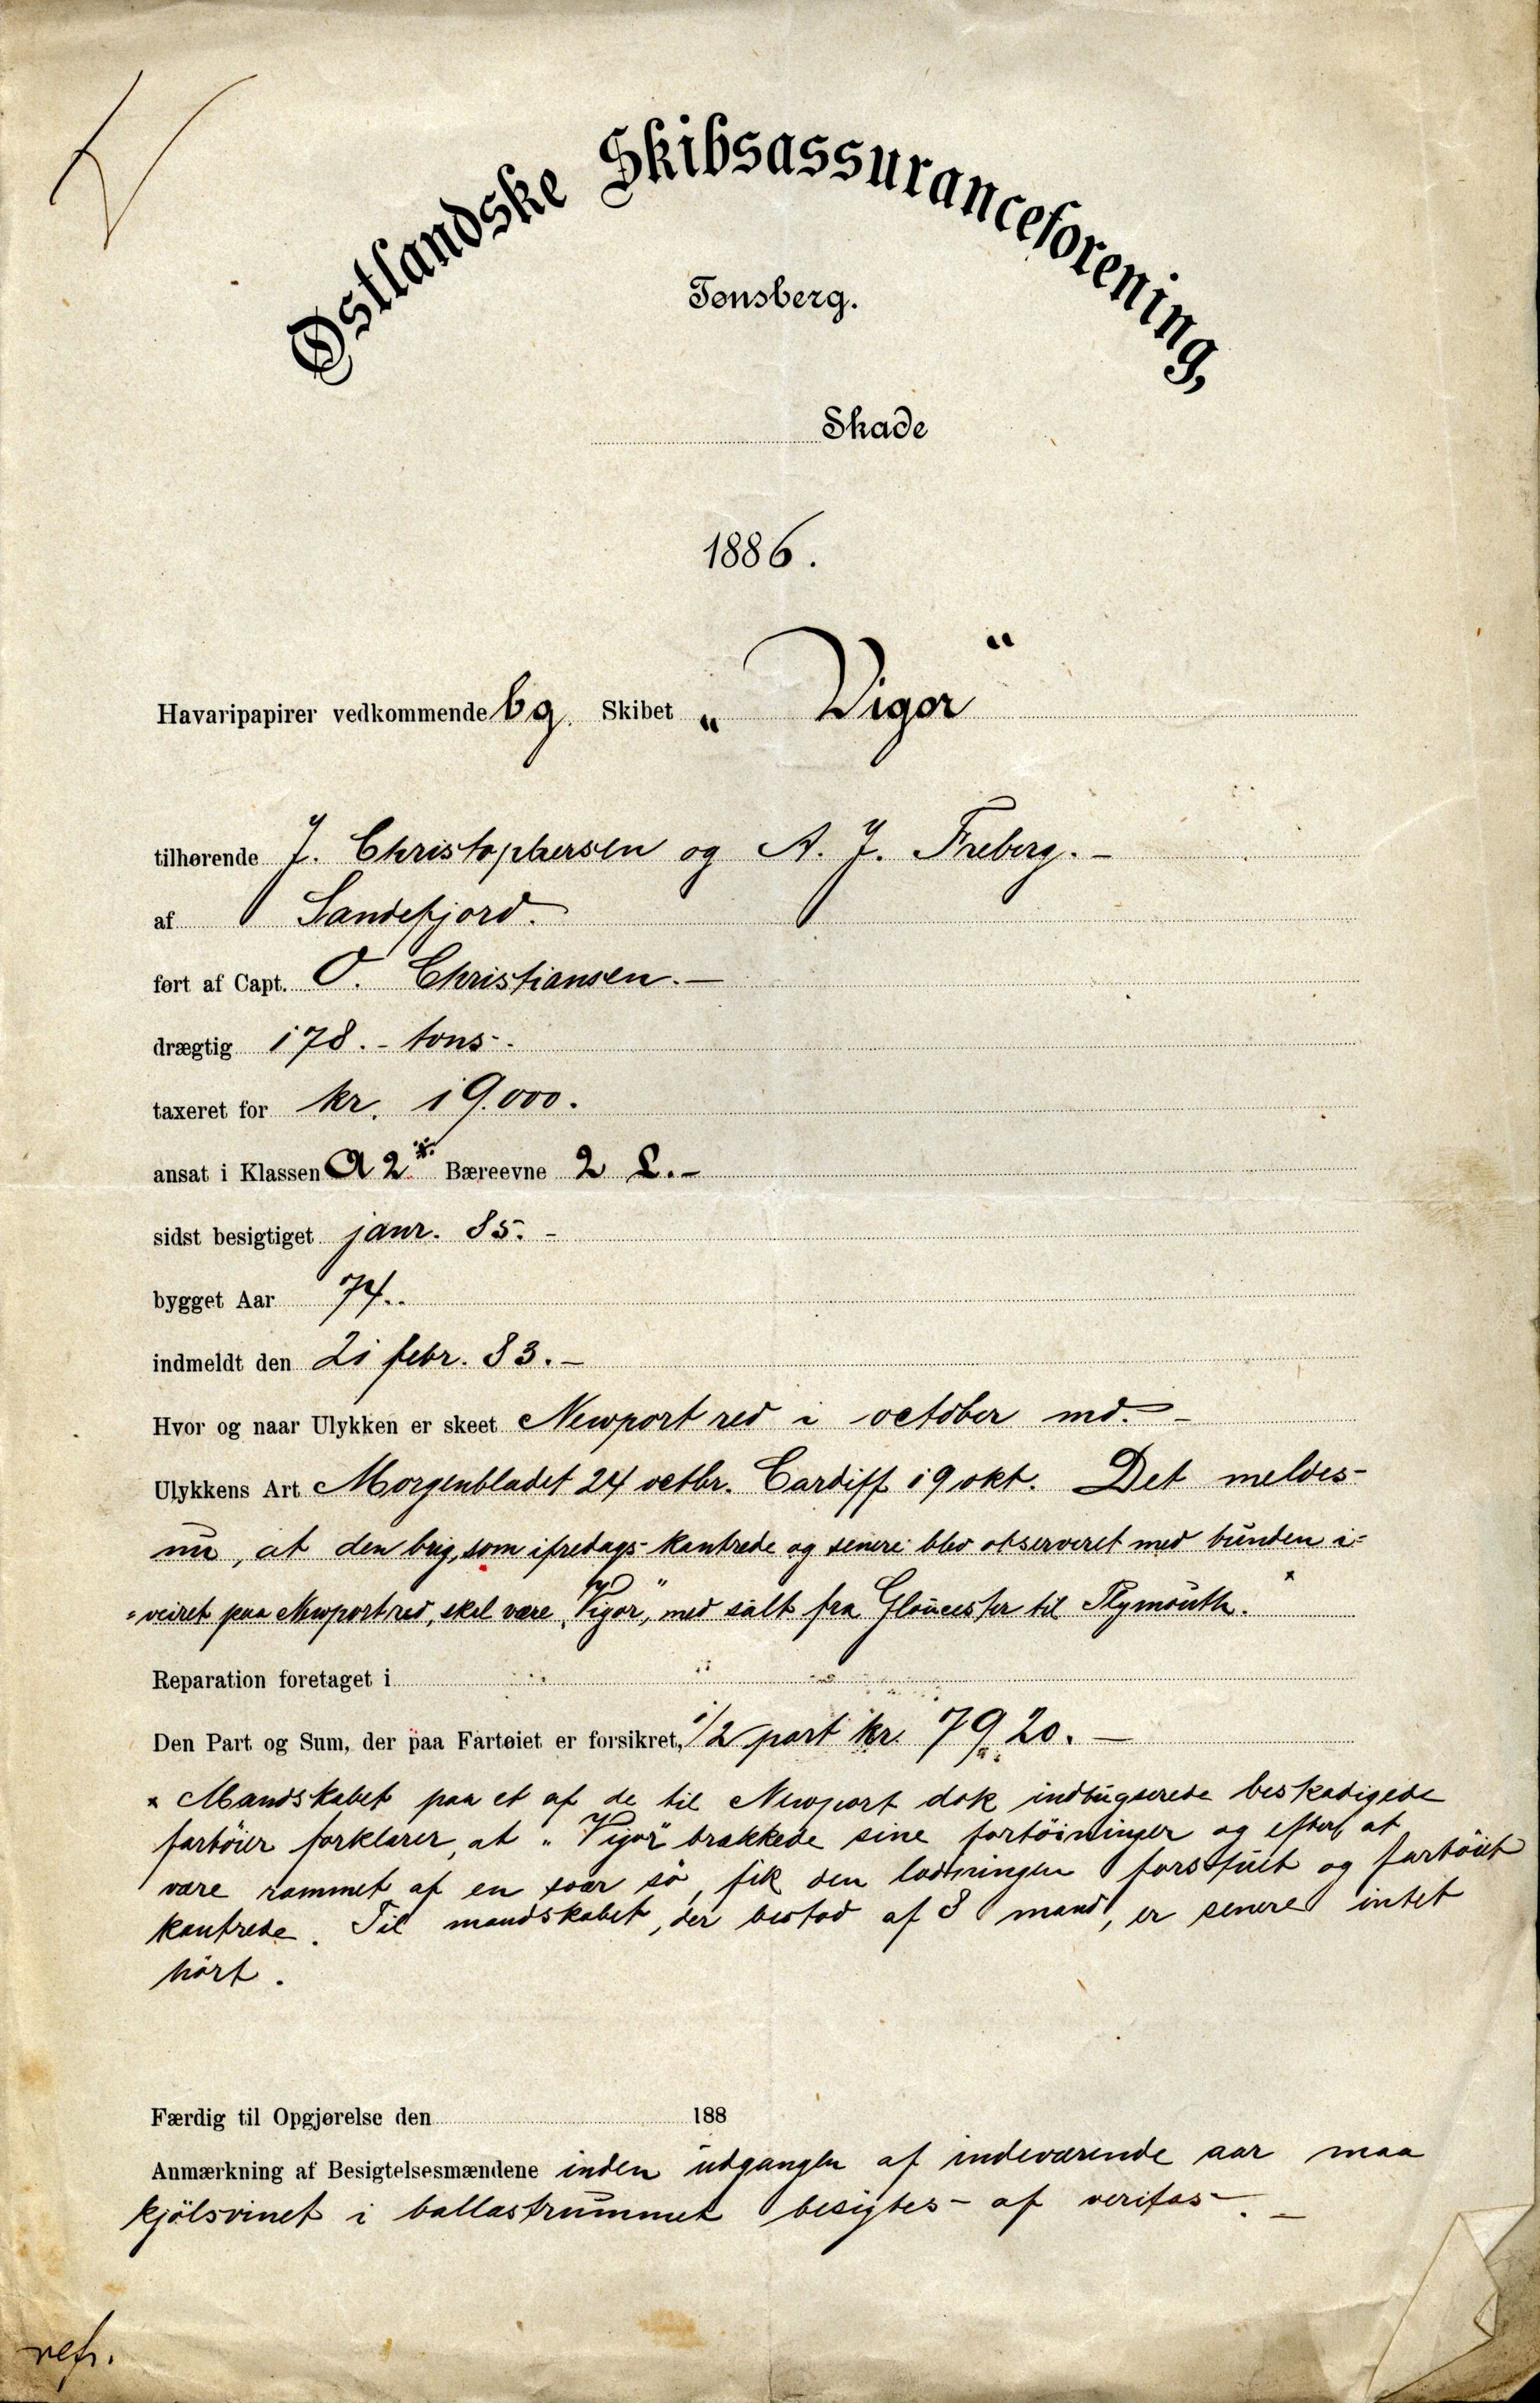 Østlandske Skibsassuranceforening,
Tønsberg.
Skade
1886.
Havaripapirer vedkommende bg. Skibet „Vigor“
tilhørende J. Christophersen og A. J. Freberg. –
af Sandefjord.
ført af Capt. O. Christiansen. –
drægtig 178. – tons.
taxeret for kr. 19.000.
ansat i Klassen A 2 * Bæreevne 2 L. –
sidst besigtiget janr. 85. –
bygget Aar 74.
indmeldt den 21 febr. 83. –
Hvor og naar Ulykken er skeet Newport red i october md. –
Ulykkens Art Morgenbladet 24 octbr. Cardiff 19 okt. Det meldes
nu, at den brig, som ifredags kantrede og senere blev observeret med bunden i =
= veiret paa Newport red, skal være „Vigor“, med salt fra Gloucester til Plymouth. x
Reparation foretaget i
Den Part og Sum, der paa Fartøiet er forsikret, 1/2 part kr. 7920. –
x Mandskabet paa et af de til Newport dok indbugserede beskadigede
fartöier forklarer, at „Vigor“ brækkede sine fortöininger og efter at
være rammet af en svær sö, fik den ladningen forskjuet og fartöiet
kantrede. Til mandskabet, der bestod af 8 mand, er senere intet
hört.
Færdig til Opgjørelse den 188
Anmærkning af Besigtelsesmændene inden udgangen af indeværende aar maa
kjölsvinet i ballastrummet besigtes af veritas. –
refr.